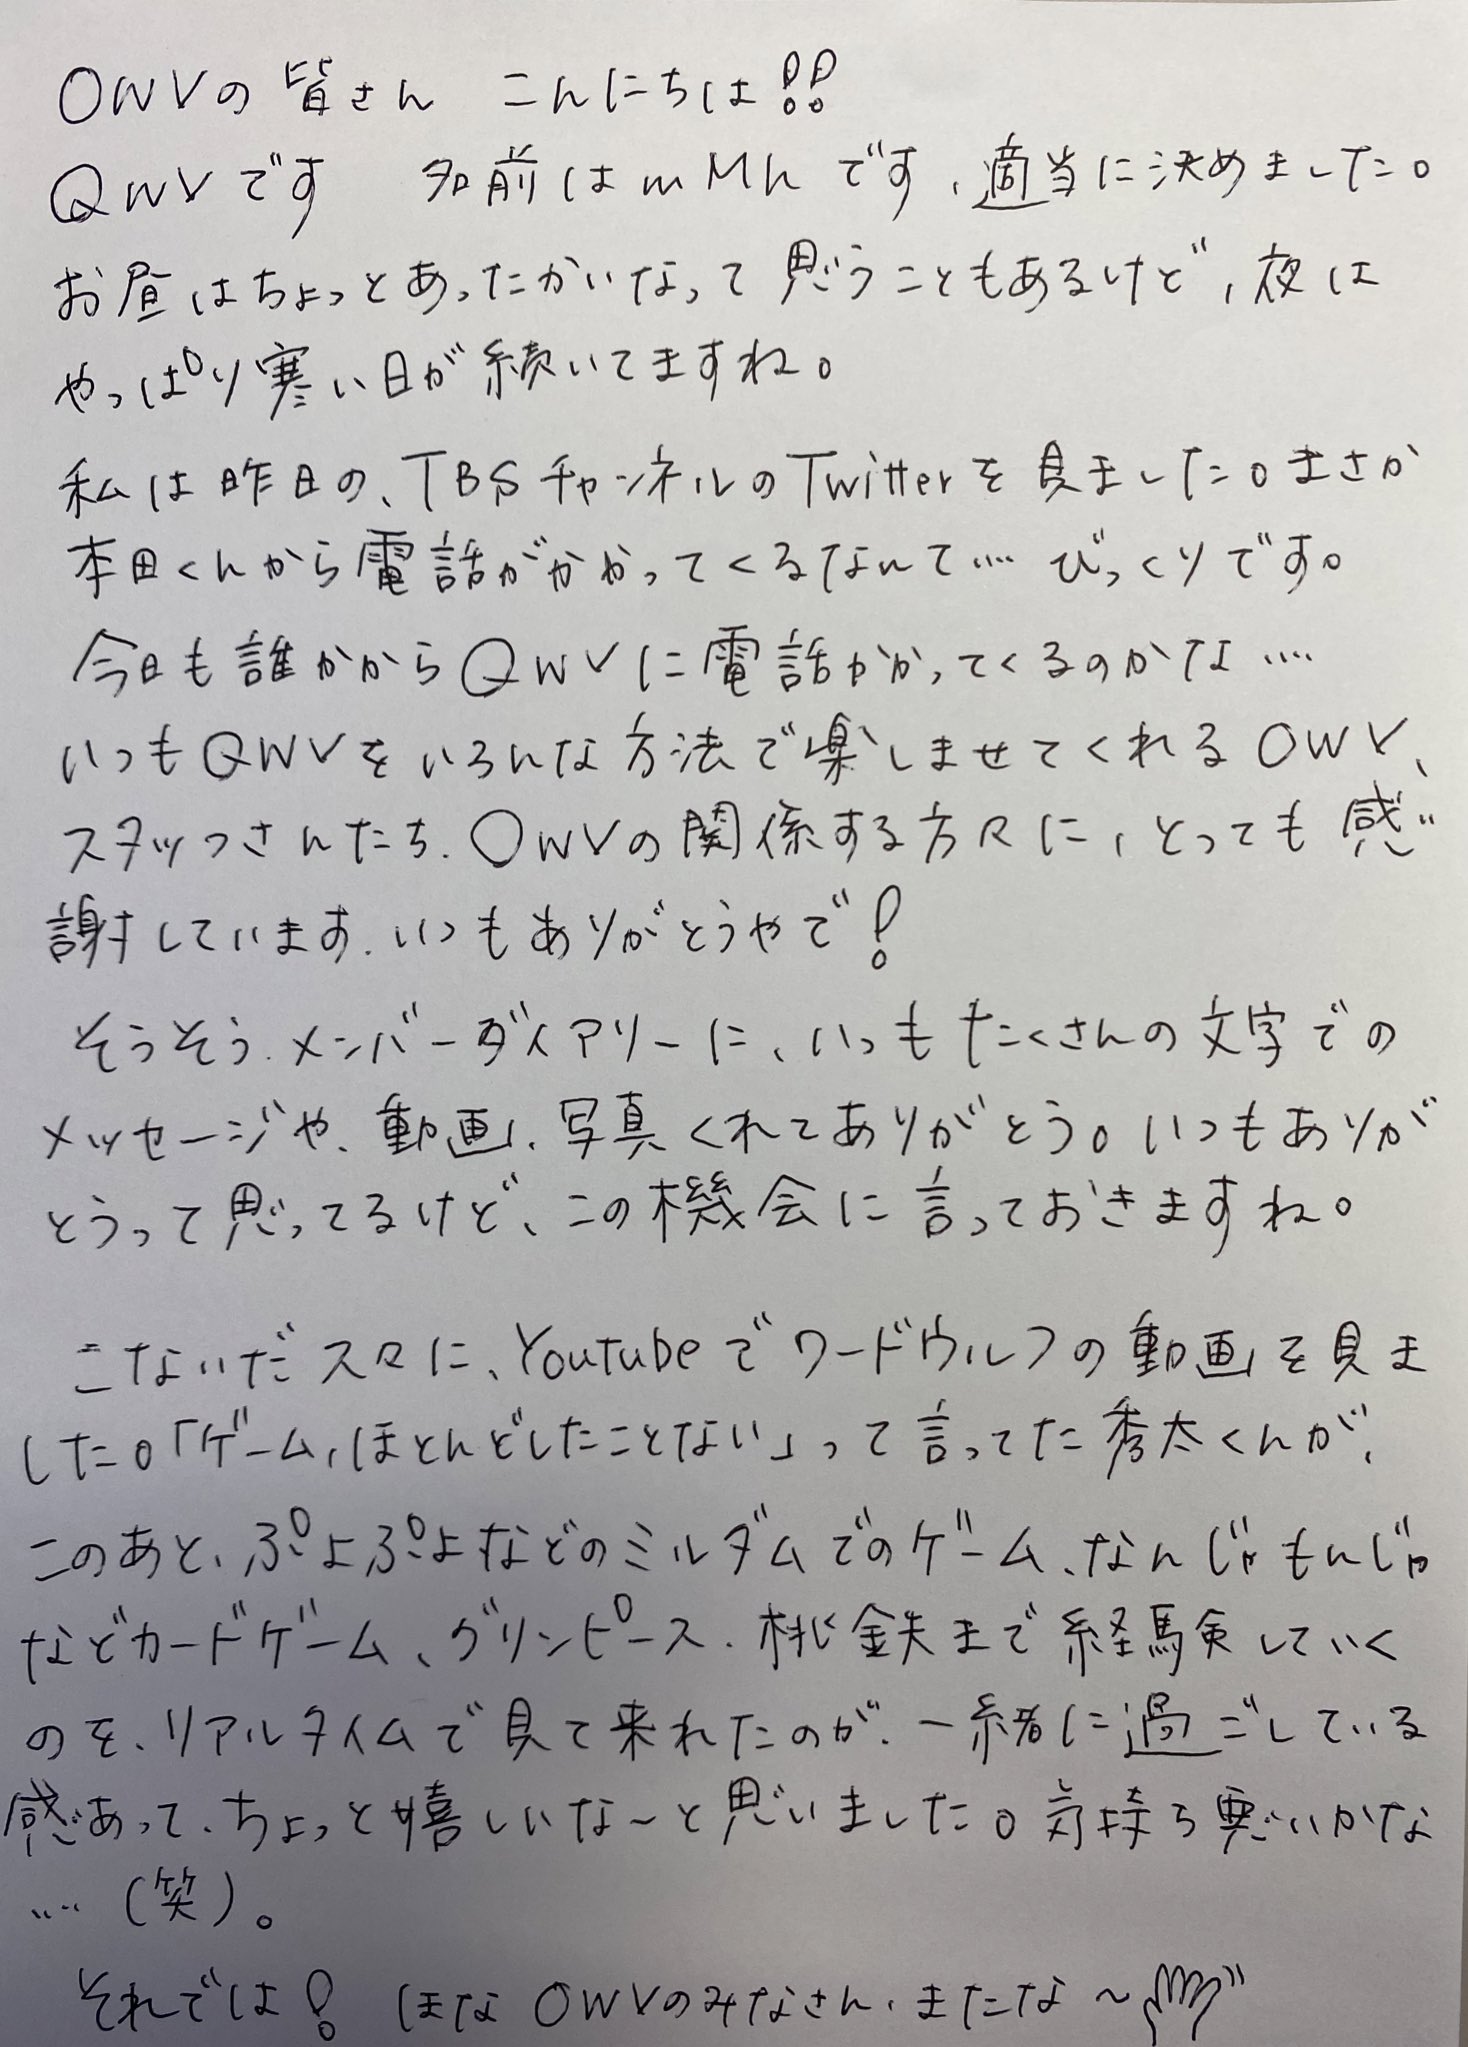 OWVの皆さん こんにちは!!
QWVです 名前はmMhです、適当に決めました。
お昼はちょっとあったかいなって思うこともあるけど、夜は
やっぱり寒い日が続いてますね。
私は昨日の、TBSチャンネルのTwitterを見ました。まさか
本田くんから電話がかかってくるなんて…. びっくりです。
今日も誰かからQWVに電話かかってくるのかな….
いつもQWVをいろんな方法で楽しませてくれるOWV、
スタッフさんたち、OWVの関係する方々に、とっても感
謝しています、いつもありがとうやで!
そうそう、メンバーダイアリーに、いつもたくさんの文字での
メッセージや、動画、写真くれてありがとう。いつもありが
とうって思ってるけど、この機会に言っておきますね。
こないだ久々に、YouTubeでワードウルフの動画を見ま
した。「ゲーム、ほとんどしたことない」って言ってた秀太くんが、
このあと、ぷよぷよなどのミルダムでのゲーム、なんじゃもんじゃ
などカードゲーム、グリンピース、桃鉄まで経験していく
のを、リアルタイムで見て来れたのが、一緒に過ごしている
感あって、ちょっと嬉しいな〜と思いました。気持ち悪いかな
….(笑)。
それでは! ほな OWVのみなさん、またな〜